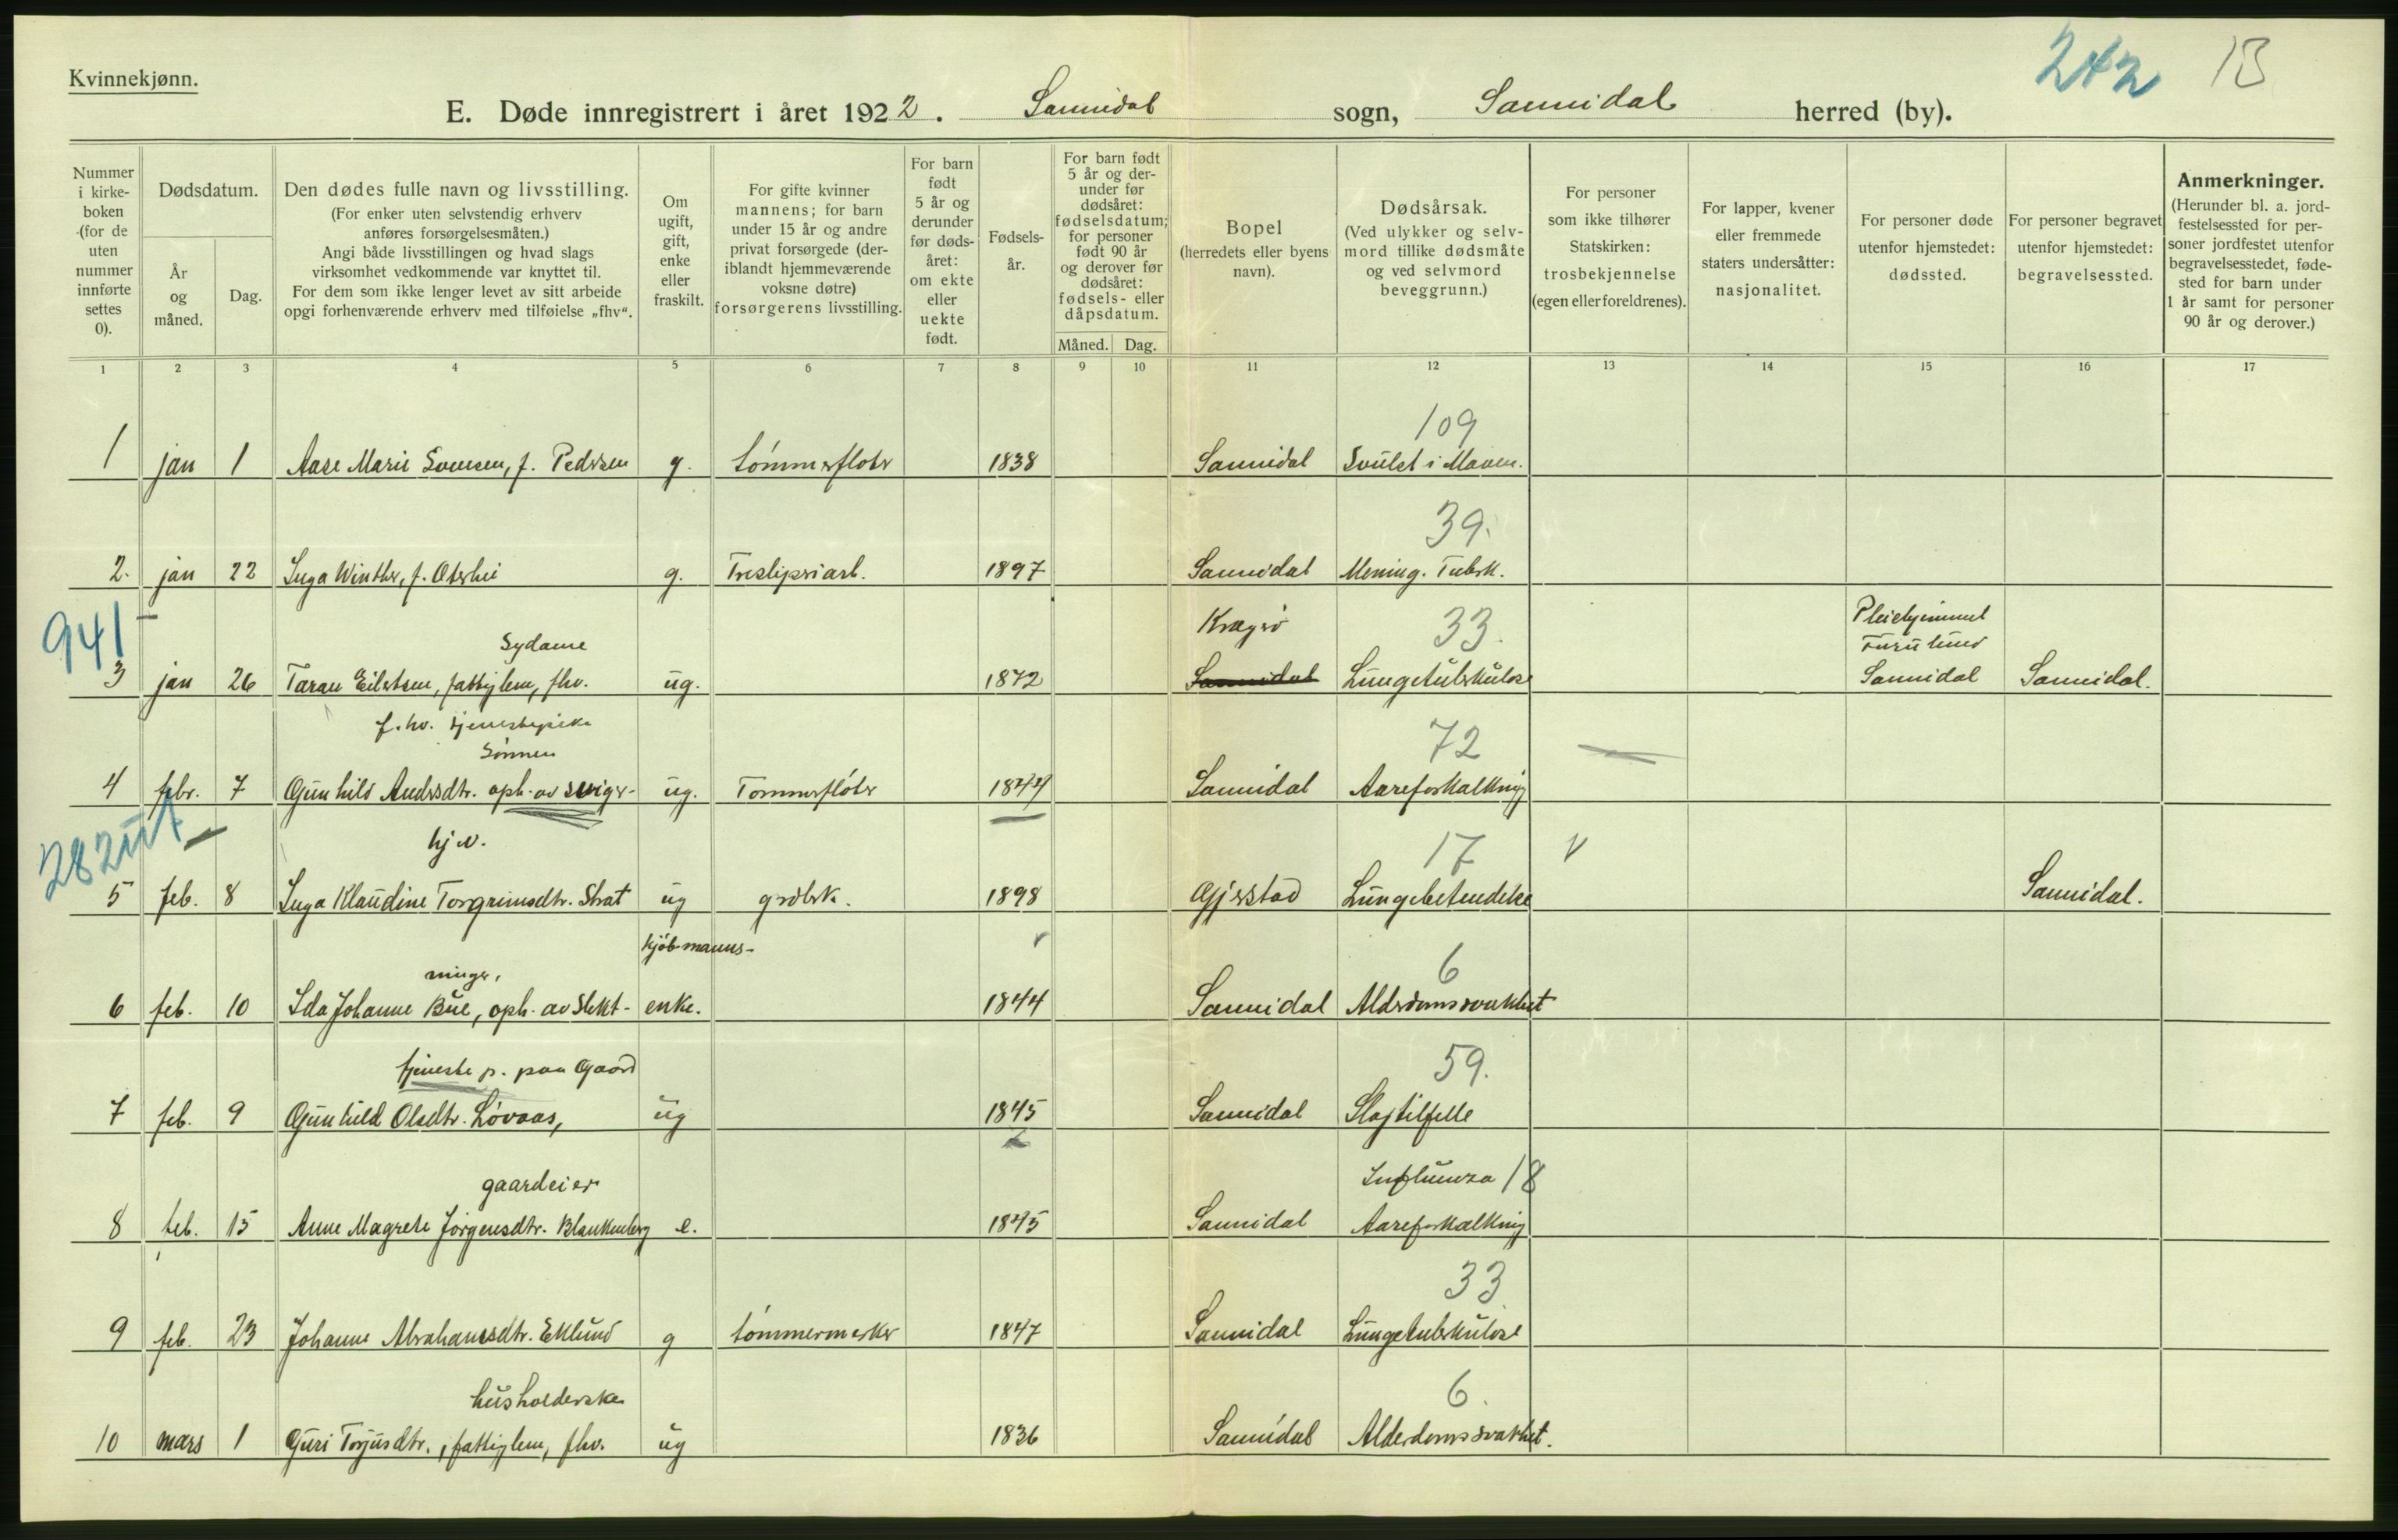 Kvinnekjønn.
242 13
E. Døde innregistrert i året 1922. Sannidal sogn, Sannidal herred (by).
Nummer i kirke-boken (for de uten nummer innførte settes 0).
Dødsdatum.
År og måned.
Dag.
Den dødes fulle navn og livsstilling.
(For enker uten selvstendig erhverv anføres forsørgelsesmåten.)
Angi både livsstillingen og hvad slags virksomhet vedkommende var knyttet til.
For dem som ikke lenger levet av sitt arbeide opgi forhenværende erhverv med tilføielse „fhv“.
Om ugift, gift, enke eller fraskilt.
For gifte kvinner mannens; for barn under 15 år og andre privat forsørgede (deriblandt hjemmeværende voksne døtre) forsørgerens livsstilling.
For barn født 5 år og derunder før dødsåret: om ekte eller uekte født.
Fødselsår.
For barn født 5 år og derunder før dødsåret: fødselsdatum; for personer født 90 år og derover før dødsåret: fødsels- eller dåpsdatum.
Måned. Dag.
Bopel (herredets eller byens navn).
Dødsårsak. (Ved ulykker og selvmord tillike dødsmåte og ved selvmord beveggrunn.)
For personer som ikke tilhører Statskirken: trosbekjennelse (egen eller foreldrenes).
For lapper, kvener eller fremmede staters undersåtter: nasjonalitet.
For personer døde utenfor hjemstedet: dødssted.
For personer begravet utenfor hjemstedet: begravelsessted.
Anmerkninger. (Herunder bl. a. jordfestelsessted for personer jordfestet utenfor begravelsesstedet, fødested for barn under 1 år samt for personer 90 år og derover.)
1 2 3 4 5 6 7 8 9 10 11 12 13 14 15 16 17
109
1 jan 1 Aase Marie Svensen, f. Pedersen g. tømmerfløter 1838 Sannidal Svulst i Maven.
39.
2. jan 22 Inga Winther, f. Oterhei g. Tresliperiarb. 1897 Sannidal Mening. Tuberk.
941
Sydame Kragerø 33. Pleiehjemmet Furulund
3 jan 26 Taran Eilertsen, fattiglem, fhv. ug. 1872 Sannidal Lungetuberkulose Sannidal Sannidal.
f. hv. tjenestepike
Sønnen 72
4 febr. 7 Gunhild Andersdtr. oph. av sviger- ug. Tømmerfløter 1844 Sannidal Aareforkalkning
282
hj v. 17 V
5 feb. 8 Inga Klaudine Torgrimsdtr. Strat ug grdbrk. 1898 Gjerstad Lungebetendelse Sannidal.
kjøbmanns-
ninger, 6
6 feb. 10 Ida Johanne Bue, oph. av Slekt- enke. 1844 Sannidal Alderdomssvakhet
tjeneste p. paa Gaard 59.
7 feb. 9 Gunhild Olsdtr. Løvaas, ug 1845 Sannidal Slagtilfelle
gaardeier Influenza 18
8 feb. 15 Anne Magrete Jørgensdtr. Blankenberg e. 1845 Sannidal Aareforkalkning
33
9 feb. 23 Johanne Abrahamsdtr. Eklund g tømmermerker 1847 Sannidal Lungetuberkulose
husholderske 6.
10 mars 1 Guri Torjusdtr., fattiglem, fhv. ug 1836 Sannidal Alderdomssvakhet.